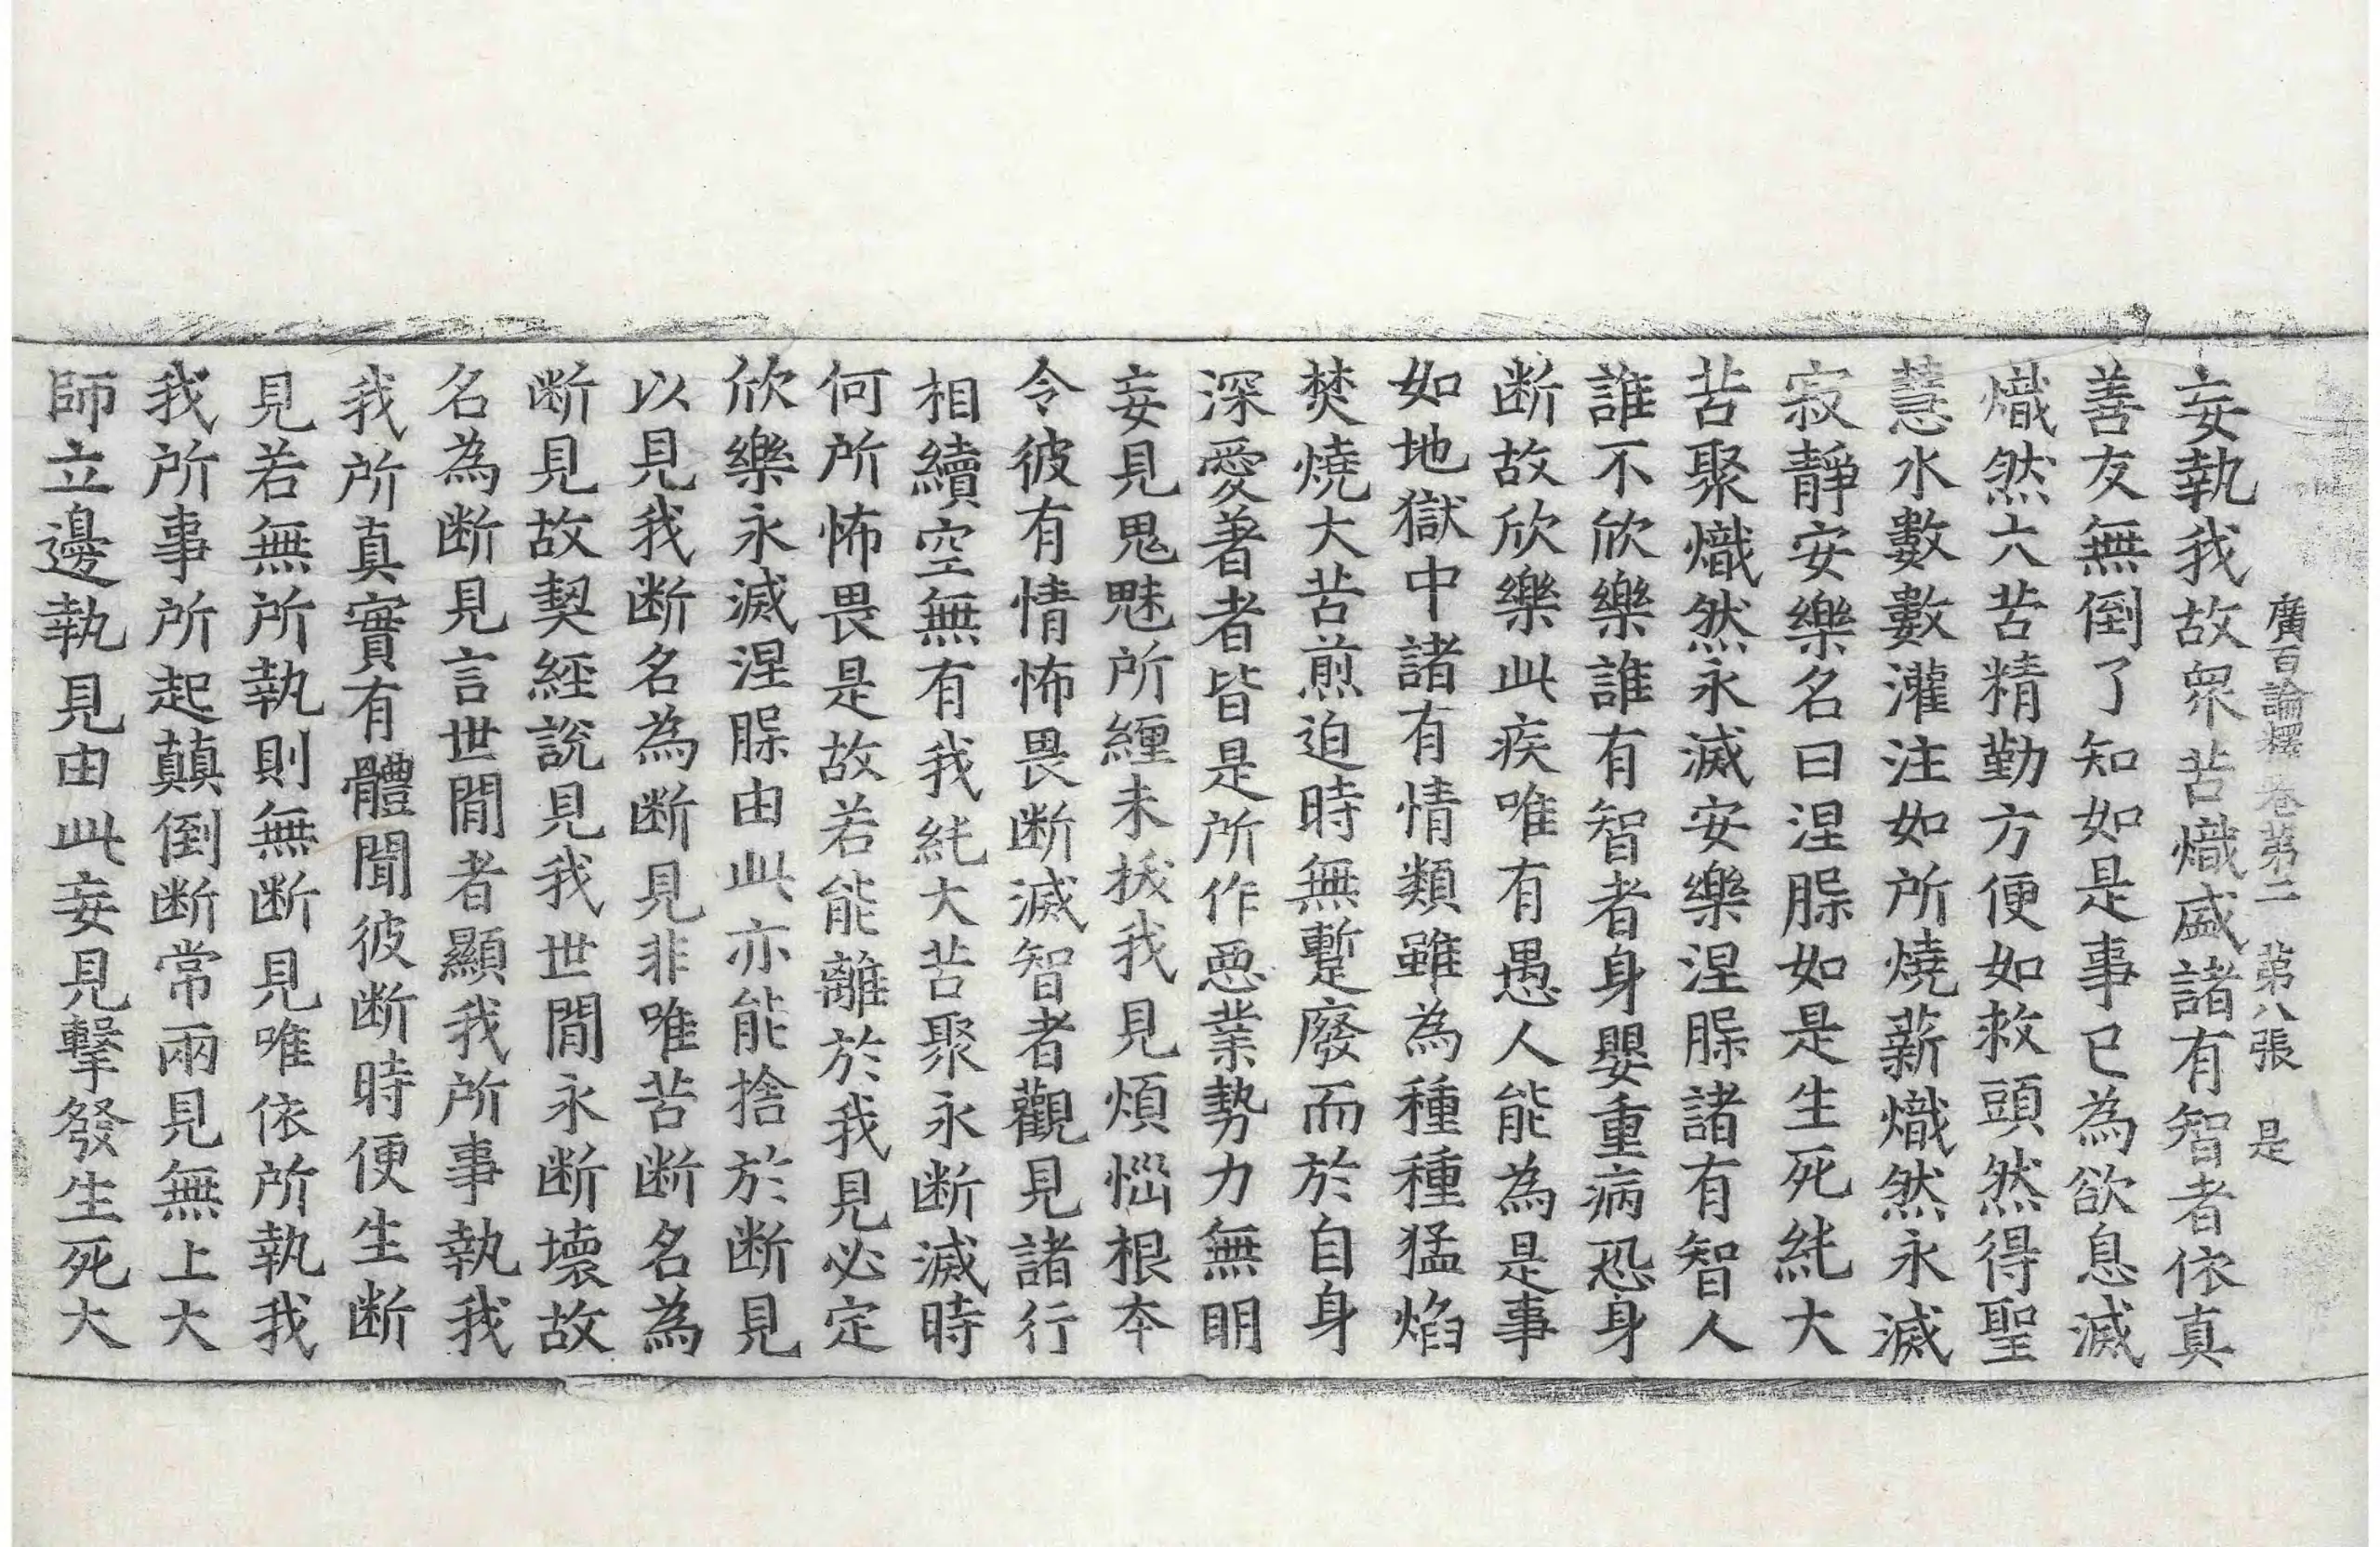 廣百論釋卷第二 第八張 是
妄執我故衆苦熾盛諸有智者依真
善友無倒了知如是事已為欲息滅
熾然六苦精勤方便如救頭然得聖
慧水數數灌注如所燒薪熾然永滅
寂靜安樂名曰涅槃如是生死純大
苦聚熾然永滅安樂涅槃諸有智人
誰不欣樂誰有智者身嬰重病恐身
断故欣樂此疾唯有愚人能為是事
如地獄中諸有情類雖為種種猛焰
焚燒大苦煎迫時無蹔廢而於自身
深愛著者皆是所作惡業勢力無明
妄見鬼魅所纏未拔我見煩惱根本
令彼有情怖畏断滅智者觀見諸行
相續空無有我純大苦聚永断滅時
何所怖畏是故若能離於我見必定
欣樂永滅涅槃由此亦能捨於断見
以見我断名為断見非唯苦断名為
断見故契經說見我世間永断壞故
名為断見言世間者顯我所事執我
我所真實有體聞彼断時便生断
見若無所執則無断見唯依所執我
我所事所起顛倒断常兩見無上大
師立邊執見由此妄見擊發生死大